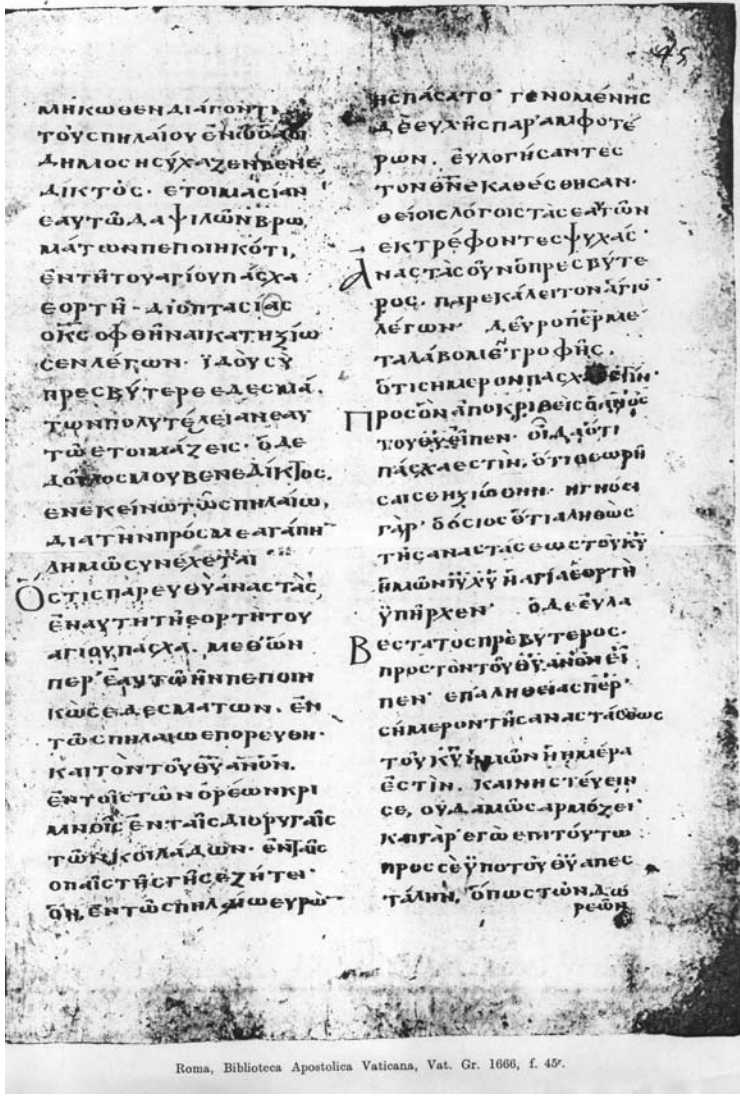 45
μηκωθεν διάγοντι
τοῦ σπηλαίου ἐν ὧ
δημος ἡσύχαζεν βενε
δικτὸς· ετοιμασίαν
εαυτῶ δαψιλῶν βρω
μάτων πεποιηκότι,
ἐν τῆ τοῦ ἁγίου πάσχα
εορτῆ - δι οπτασίας
ο κ̅ς̅ οφθῆναι κατηξίω
σεν λέγων· ϊδοὺ σὺ
πρεσβύτερε εδεσμά
των πολυτέλειαν εαυ
τῶ ετοιμάζεις· ὁ δε
δοῦλος μου βενεδίκτος,
εν εκείνω τῶ σπηλαίω,
διὰ τὴν πρός με αγάπην
λημῶ συνέχεται
Ὅστις παρευθὺ ἀναστὰς,
ἐν αυτῆ τῆ εορτῆ του
αγιου πάσχα. μεθ ὧν
περ ἑαυτῶ ἦν πεποιη
κὼς εδεσμάτων. ἐν
τῶ σπηλαίω επορεύθη·
και τὸν τοῦ θ̅υ̅ α̅ν̅ο̅ν̅.
ἐν τοῖς τῶν ὀρέων κρι
μνοῖς ἐν ταῖς διορυγαῖς
τῶν κοιλάδων· ἐν ταῖς
οπαῖς τῆς γῆς εζήτει·
ὃν, ἐν τῶ σπηλαίω ευρὼν
ησπάσατο· γενομένης
δὲ ευχῆς παρ αμφοτέ
ρων. ευλογήσαντες
τὸν θ̅ν̅ εκαθέσθησαν·
θείοις λόγοις τὰς εαυτῶν
εκτρέφοντες ψυχάς·
Ἀναστὰς οὖν ὁ πρεσβύτε
ρος. παρεκάλει τὸν ἁγιο
λέγων· δεῦρο πε̅ρ̅ με
ταλάβομεν τροφῆς.
ὅτι σήμερον πάσχα εστιν·
Πρὸς ὃν αποκριθεὶς ὁ α̅ν̅ο̅ς̅
τοῦ θ̅υ̅ εἶπεν· οἶδα ὅτι
πάσχα εστὶν, ὅτι θεωρῆ
σαί σε ηξιώθην· ηγνόει
γὰρ ὁ ὅσιος ὅτι αληθῶς
τῆς αναστάσεως τοῦ κ̅υ̅
ημῶν ι̅υ̅ χ̅υ̅ ἡ αγία εορτὴ
ϋπῆρχεν· ὁ δε ευλα
Βέστατος πρεσβύτερος.
προς τὸν τοῦ θ̅υ̅ α̅ν̅ο̅ν̅ εῖ
πεν· επ αληθείας πε̅ρ̅
σήμερον τῆς αναστάσεως
τοῦ κ̅υ̅ ημῶν ἡ ημέρα
ἐστὶν. και νηστεύειν
σε, ουδαμῶς αρμόζει·
και γὰρ εγὼ επι τούτω
προς σὲ ϋπο τοῦ θ̅υ̅ απεσ
τάλην, ὅπως τῶν δω
ρεῶν
Roma, Biblioteca Apostolica Vaticana, Vat. Gr. 1666, f. 45r.